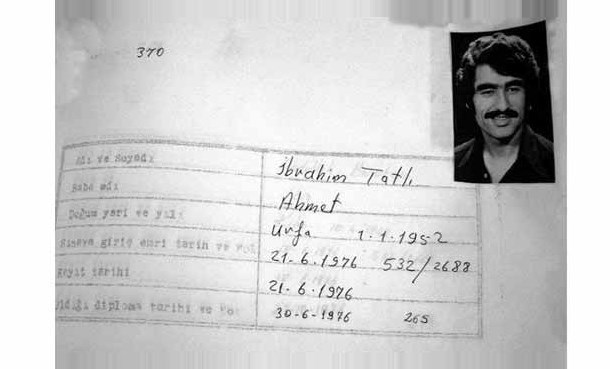 370
Adı ve Soyadı İbrahim Tatlı
Baba adı Ahmet
Doğum yeri ve yılı Urfa 1.1.1952
Sınava giriş emri tarih ve 21.6.1976 532/2688
Kayıt tarihi 21.6.1976
diploma tarihi ve No 30-6-1976 265